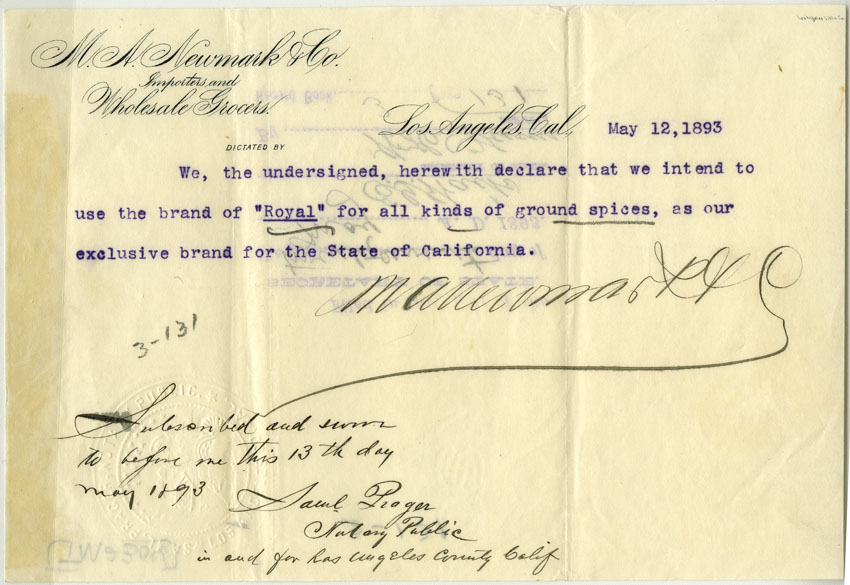 M. A. Newmark & Co.
Importers and
Wholesale Grocers.
Los Angeles, Cal., May 12,1893
DICTATED BY
We, the undersigned, herewith declare that we intend to
use the brand of "Royal" for all kinds of ground spices, as our
exclusive brand for the State of California.
M A Newmark & Co
3-131
Subscribed and sworn
to before me this 13th day
May 1893
Saml Prager
Notary Public
in and for Los Angeles County Calif